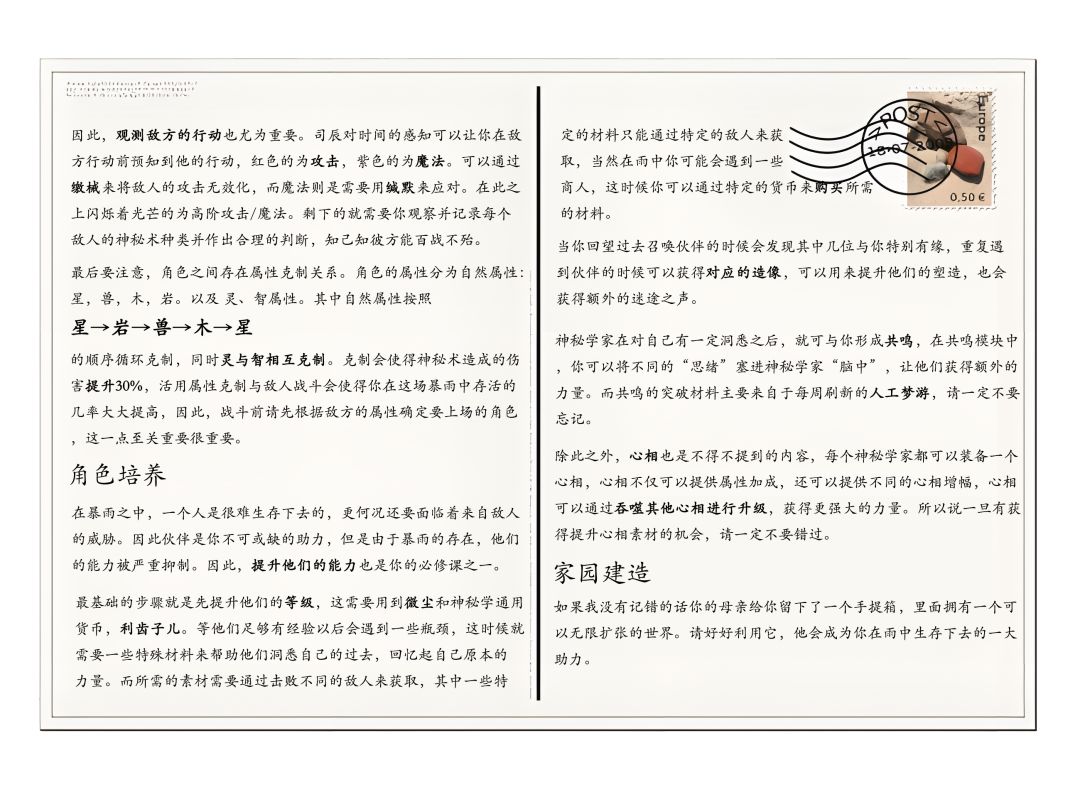 因此，观测敌方的行动也尤为重要。司辰对时间的感知可以让你在敌
方行动前预知到他的行动，红色的为攻击，紫色的为魔法。可以通过
缴械来将敌人的攻击无效化，而魔法则是需要用缄默来应对。在此之
上闪烁着光芒的为高阶攻击/魔法。剩下的就需要你观察并记录每个
敌人的神秘术种类并作出合理的判断，知己知彼方能百战不殆。
最后要注意，角色之间存在属性克制关系。角色的属性分为自然属性：
星，兽，木，岩。以及 灵、智属性。其中自然属性按照
星→岩→兽→木→星
的顺序循环克制，同时灵与智相互克制。克制会使得神秘术造成的伤
害提升30%，活用属性克制与敌人战斗会使得你在这场暴雨中存活的
几率大大提高，因此，战斗前请先根据敌方的属性确定要上场的角色
，这一点至关重要很重要。
角色培养
在暴雨之中，一个人是很难生存下去的，更何况还要面临着来自敌人
的威胁。因此伙伴是你不可或缺的助力，但是由于暴雨的存在，他们
的能力被严重抑制。因此，提升他们的能力也是你的必修课之一。
最基础的步骤就是先提升他们的等级，这需要用到微尘和神秘学通用
货币，利齿子儿。等他们足够有经验以后会遇到一些瓶颈，这时候就
需要一些特殊材料来帮助他们洞悉自己的过去，回忆起自己原本的
力量。而所需的素材需要通过击败不同的敌人来获取，其中一些特
定的材料只能通过特定的敌人来获
取，当然在雨中你可能会遇到一些
商人，这时候你可以通过特定的货币来购买所需
的材料。
POST
18-07-2008
Europe
0,50 €
当你回望过去召唤伙伴的时候会发现其中几位与你特别有缘，重复遇
到伙伴的时候可以获得对应的造像，可以用来提升他们的塑造，也会
获得额外的迷途之声。
神秘学家在对自己有一定洞悉之后，就可与你形成共鸣，在共鸣模块中
，你可以将不同的“思绪”塞进神秘学家“脑中”，让他们获得额外的
力量。而共鸣的突破材料主要来自于每周刷新的人工梦游，请一定不要
忘记。
除此之外，心相也是不得不提到的内容，每个神秘学家都可以装备一个
心相，心相不仅可以提供属性加成，还可以提供不同的心相增幅，心相
可以通过吞噬其他心相进行升级，获得更强大的力量。所以说一旦有获
得提升心相素材的机会，请一定不要错过。
家园建造
如果我没有记错的话你的母亲给你留下了一个手提箱，里面拥有一个可
以无限扩张的世界。请好好利用它，他会成为你在雨中生存下去的一大
助力。